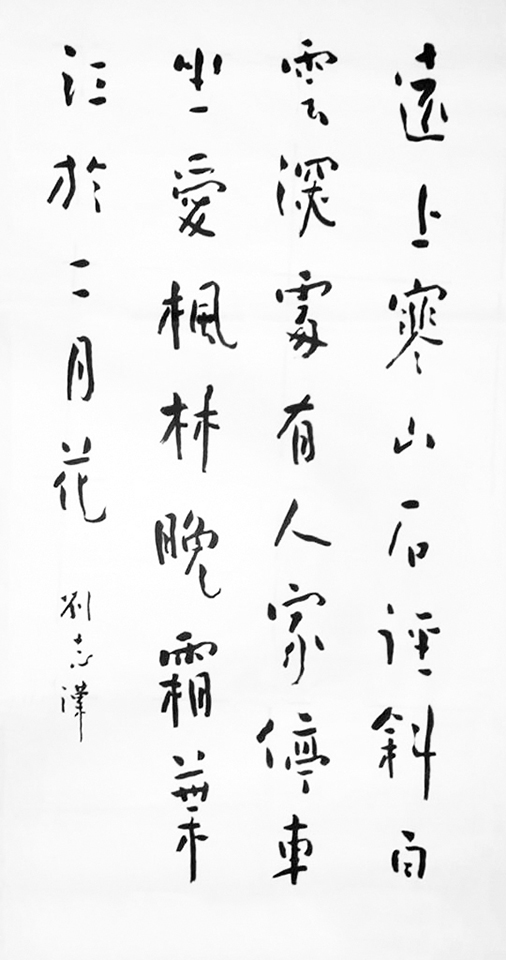 遠上寒山石徑斜白
雲深處有人家停車
坐愛楓林晚霜葉
紅於二月花
劉志